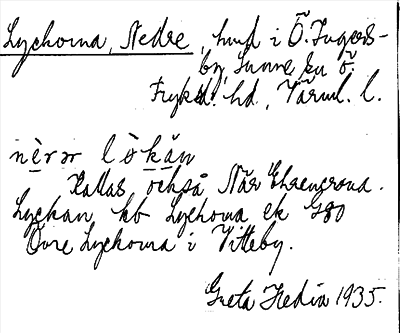 Lyckorna, Nedre, hmd i Ö. Ingers-
by, Sunne sn Ö.
Fryksd. hd, Värml. l.
nèrər lòkăn
Kallas också När
Lyckan, kb Lyckorna ek
Övre Lyckorna i Vitteby.
Greta Hedin 1935.